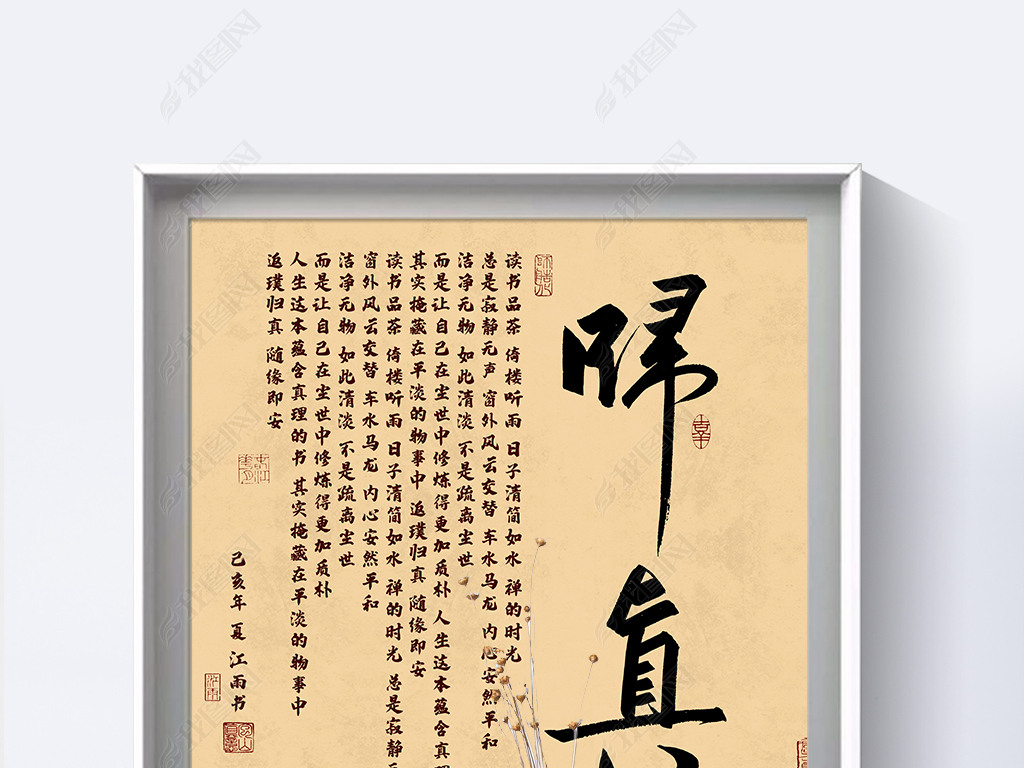 歸真
读书品茶 倚楼听雨 日子清简如水 禅的时光
总是寂静无声 窗外风云交替 车水马龙 内心安然平和
洁净无物 如此清淡 不是疏离尘世
而是让自己在尘世中修炼得更加质朴 人生这本蕴含真理
其实掩藏在平淡的物事中 返璞归真 随缘即安
读书品茶 倚楼听雨 日子清简如水 禅的时光 总是寂静
窗外风云交替 车水马龙 内心安然平和
洁净无物 如此清淡 不是疏离尘世
而是让自己在尘世中修炼得更加质朴
人生这本蕴含真理的书 其实掩藏在平淡的物事中
返璞归真 随缘即安
己亥年 夏 江雨书